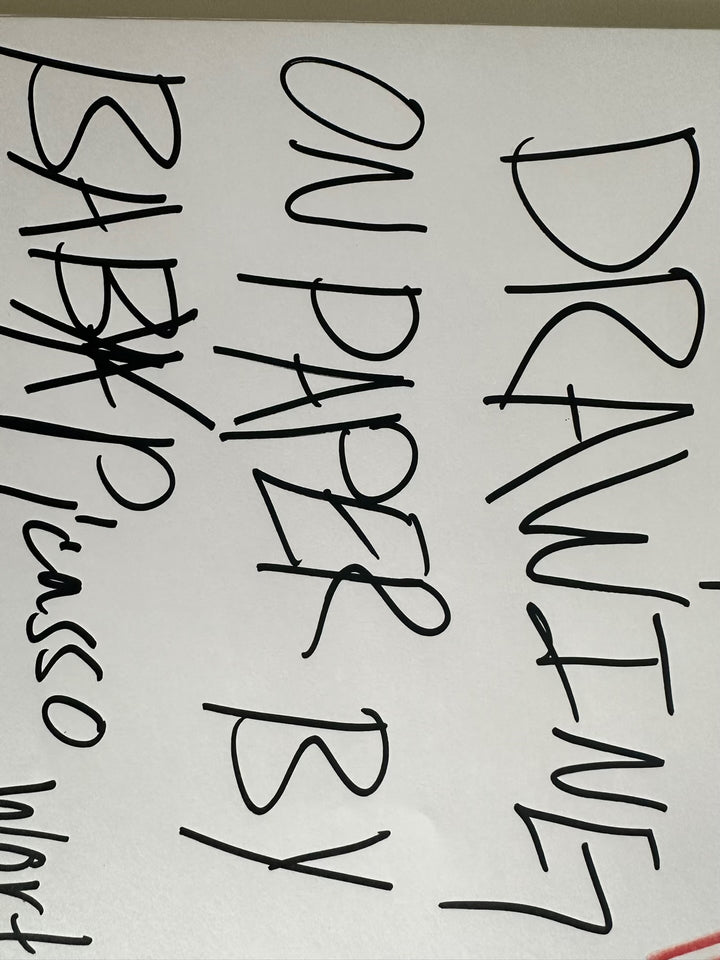 DRAWING
ON PAPER BY
BABY Picasso